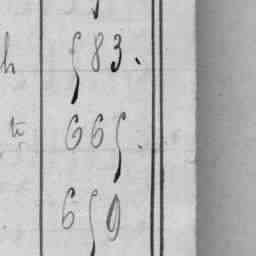 h 583.
te 665.
659